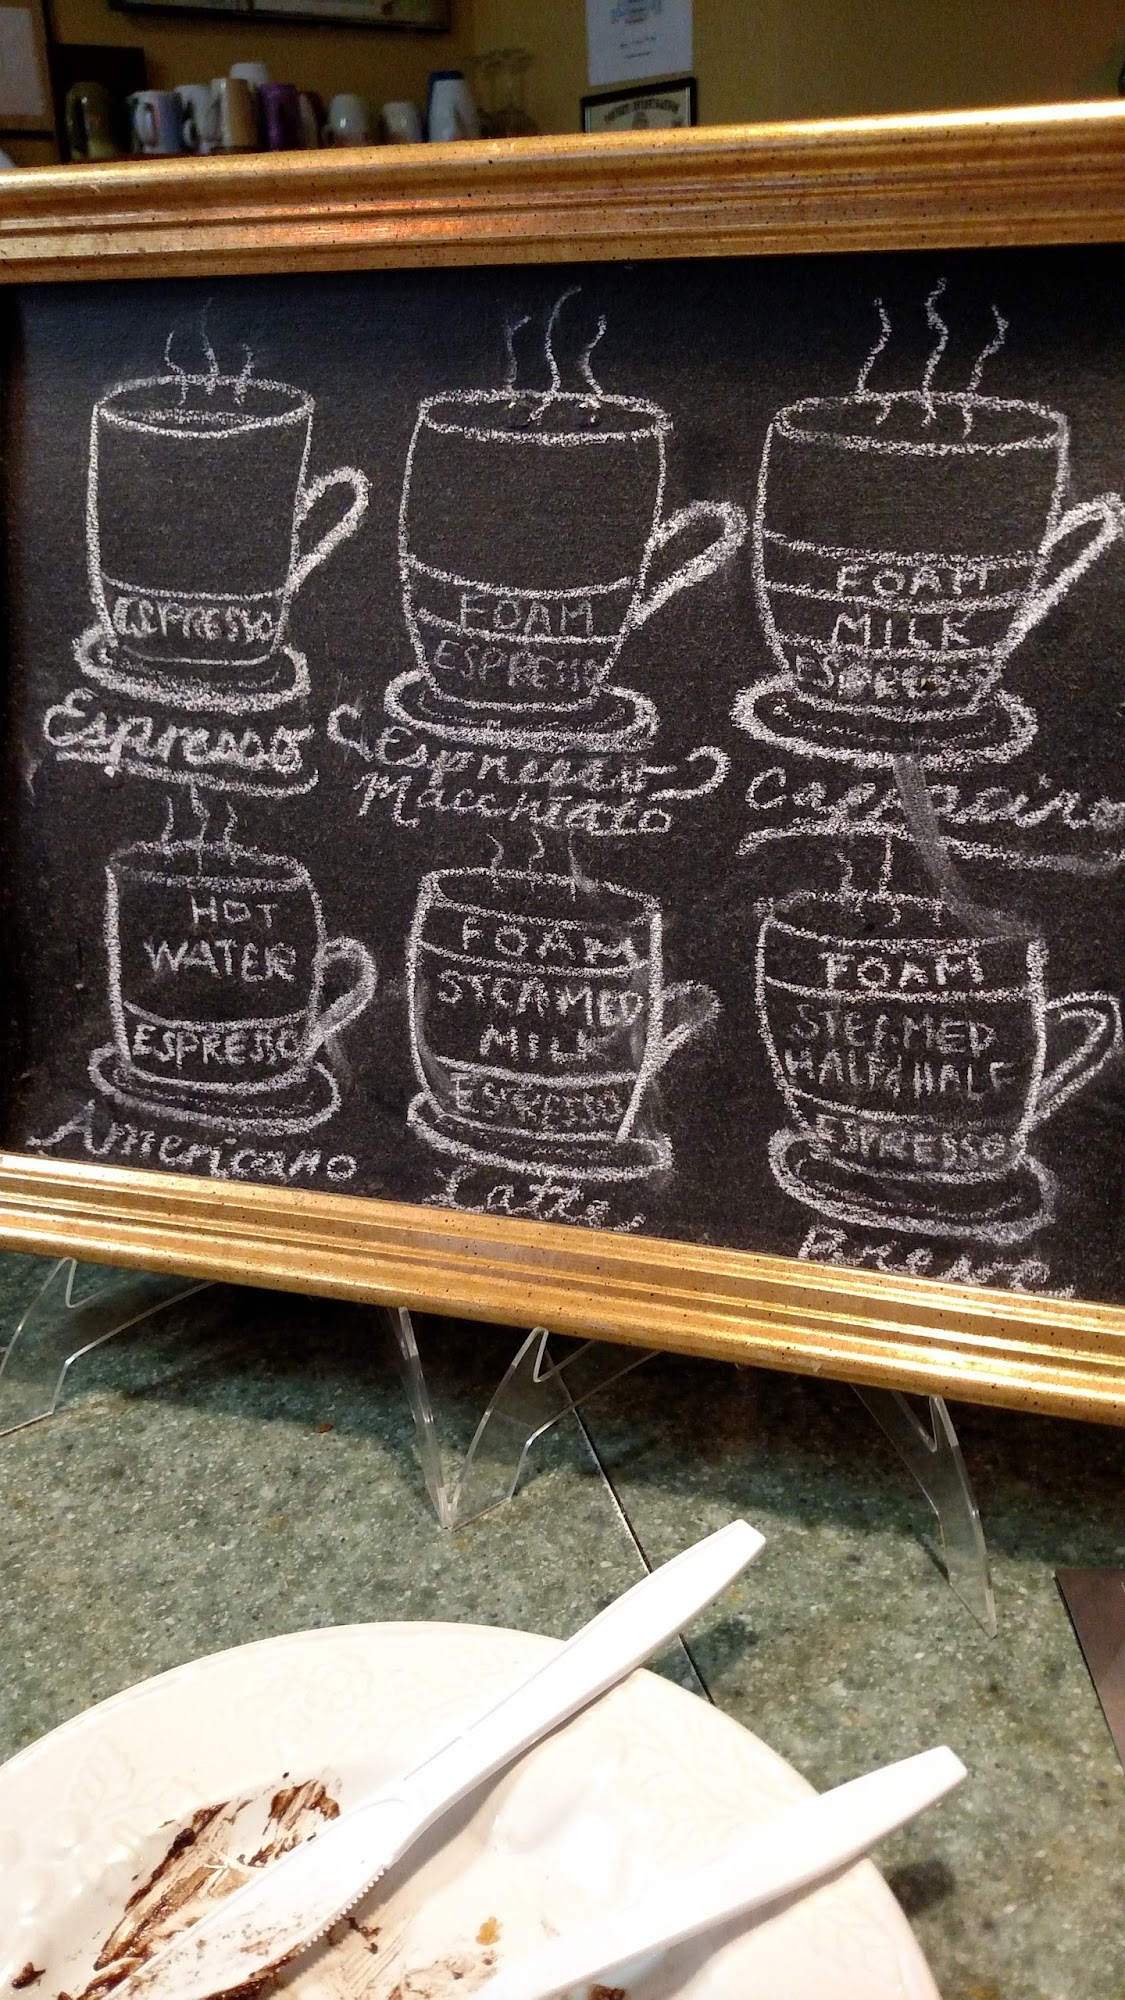 ESPRESSO
Espresso
FOAM
ESPRESSO
Espresso
Macchiato
FOAM
MILK
ESPRESSO
Cappuccino
HOT
WATER
ESPRESSO
Americano
FOAM
STEAMED
MILK
ESPRESSO
Latte
FOAM
STEAMED
HALF & HALF
ESPRESSO
Breve